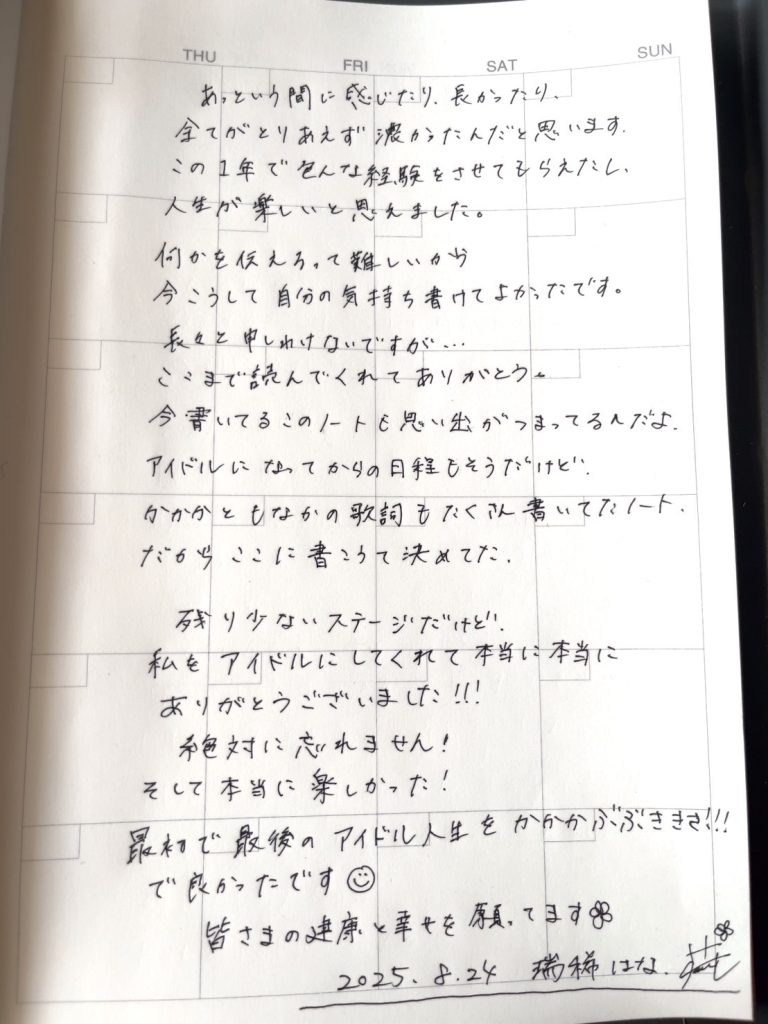 THU FRI SAT SUN
あっという間に感じたり、長かったり、
全てがとりあえず濃かったんだと思います.
この1年で色んな経験をさせてもらえたし、
人生が楽しいと思えました。
何かを伝えろって難しいから
今こうして自分の気持ち書けてよかったです。
長々と申しわけないですが…
ここまで読んでくれてありがとう。
今書いてるこのノートも思い出がつまってるんだよ.
アイドルになってからの日程もそうだけど.
かかかともなかの歌詞もたくさん書いてたノート.
だからここに書こうて決めてた.
残り少ないステージだけど.
私をアイドルにしてくれて本当に本当に
ありがとうございました!!!
絶対に忘れません!
そして本当に楽しかった!
最初で最後のアイドル人生をかかかぶぶききき!!!
で良かったです☺
皆さまの健康と幸せを願ってます
2025.8.24 瑞稀はな.